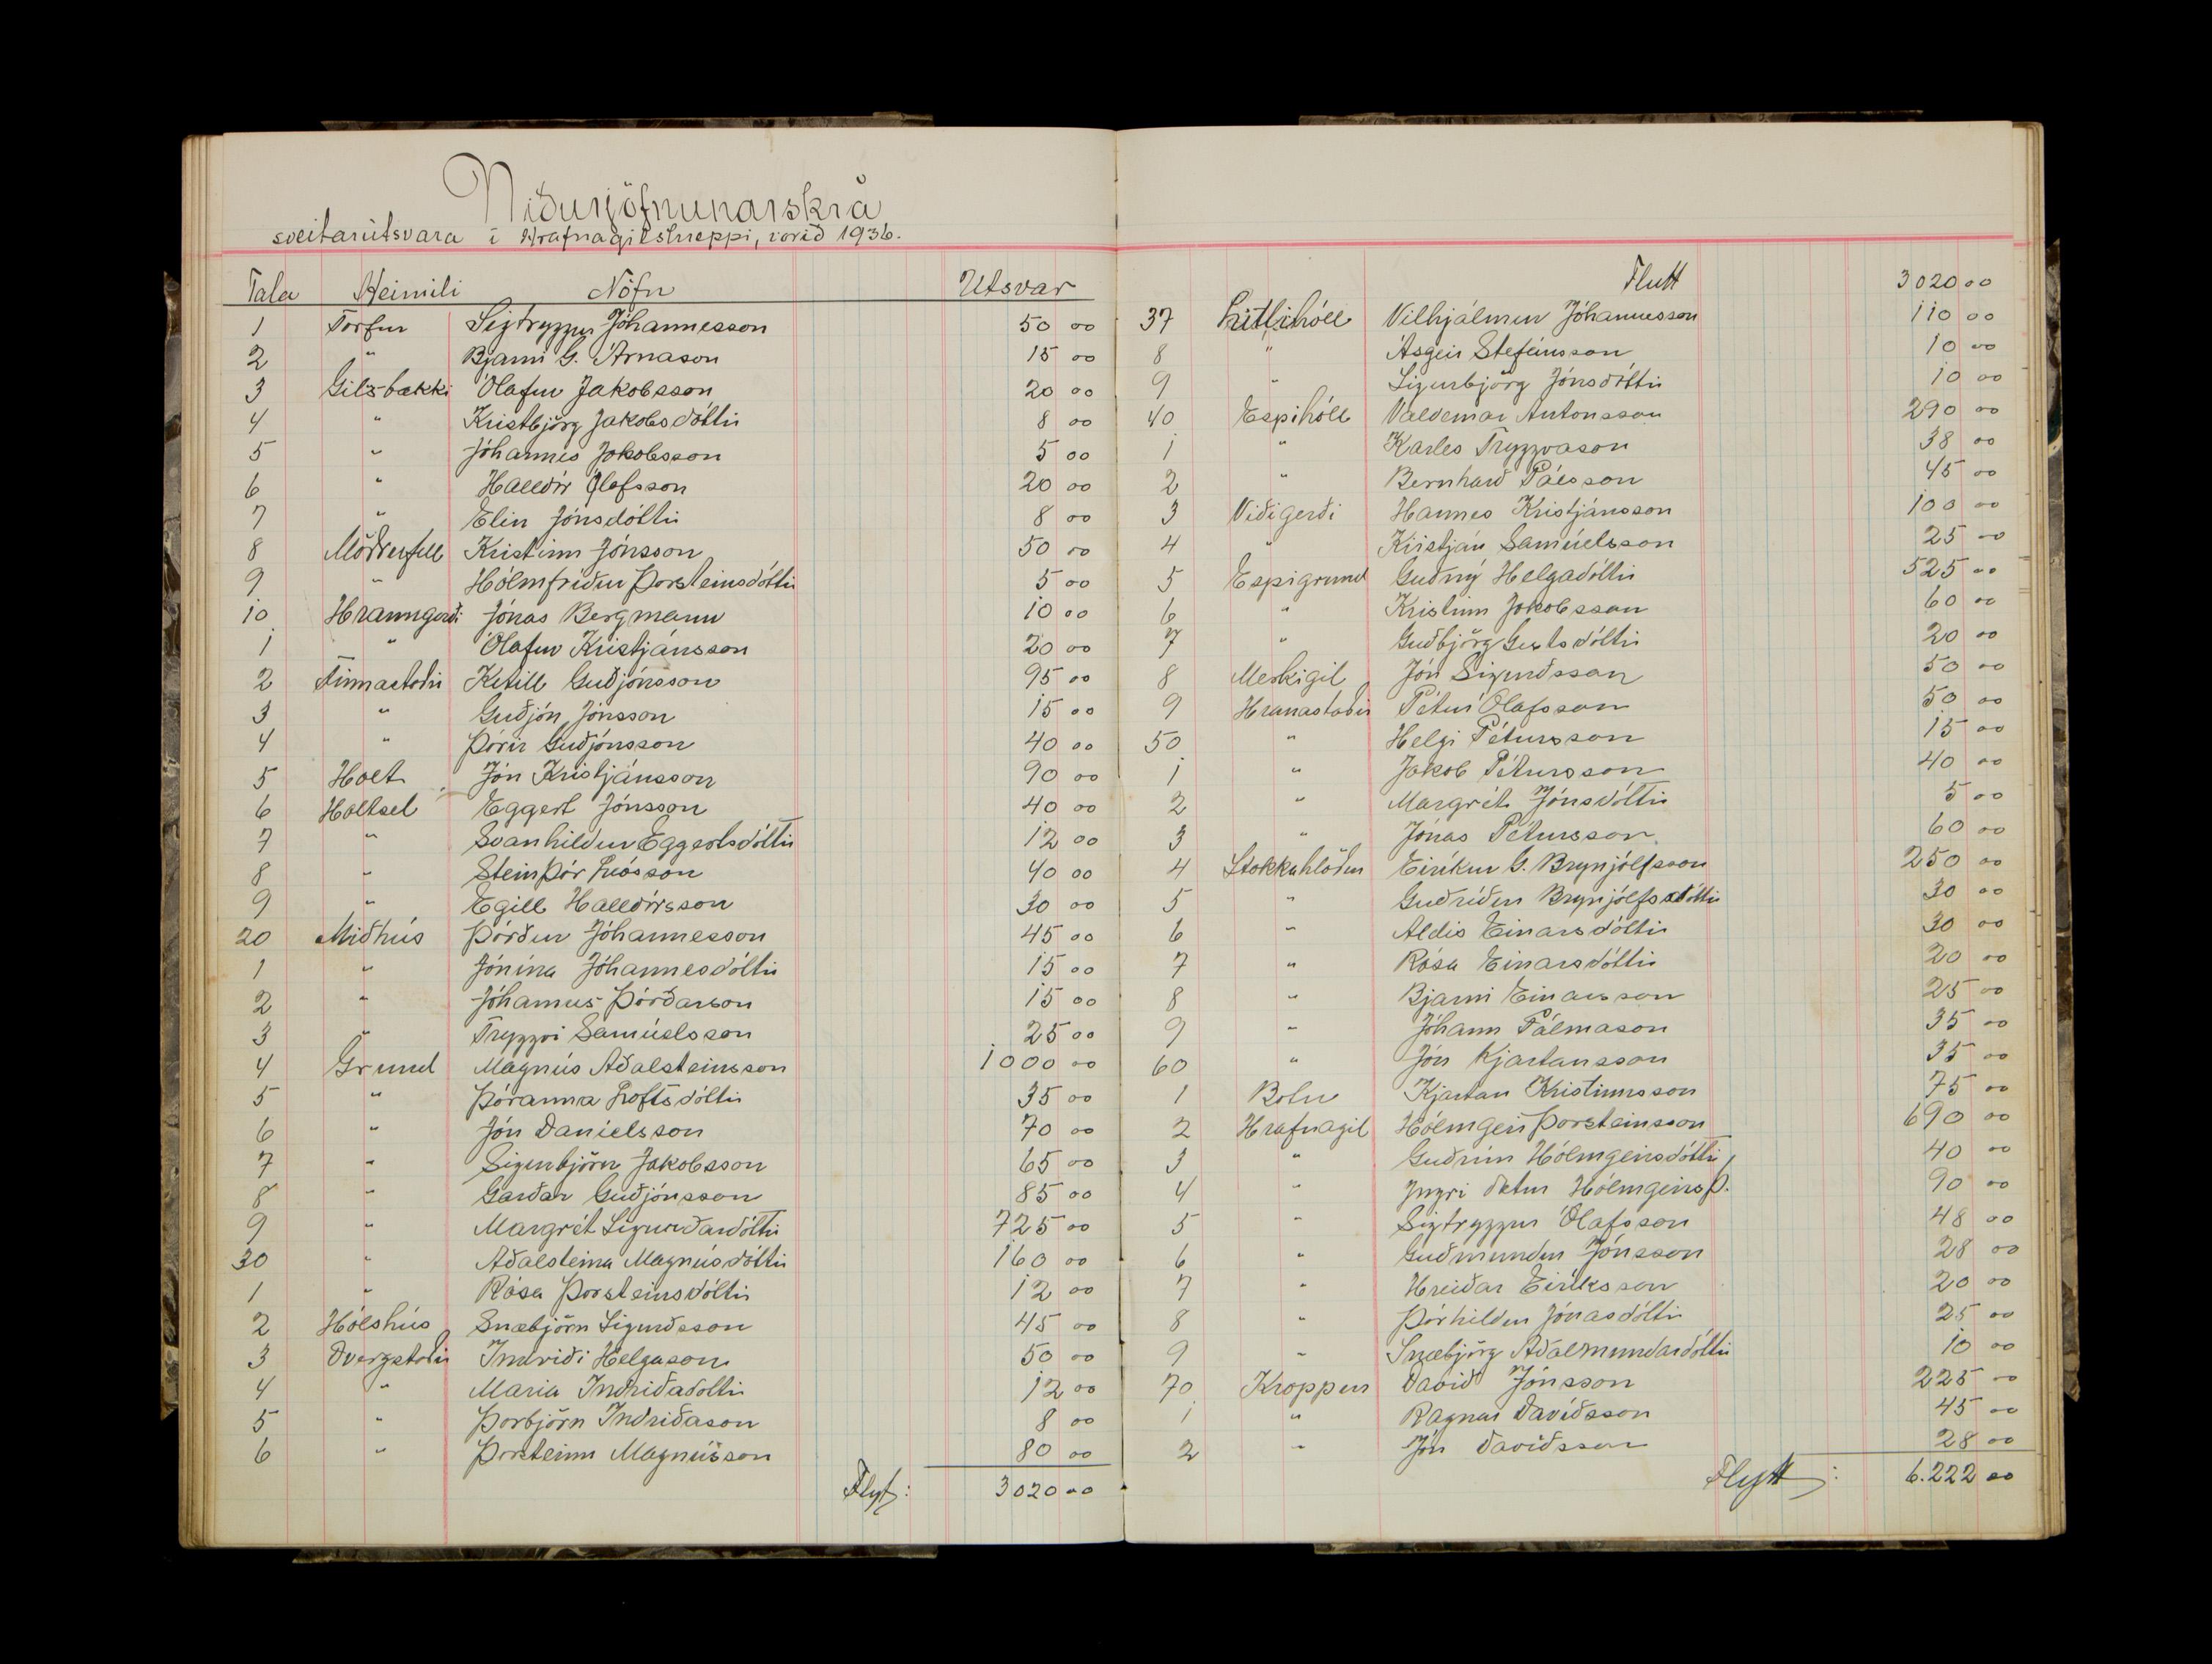 Niðurjöfnunarskrá
sveitarútsvara í Hrafnagilshreppi, vorið 1936.
Tala Heimili Nöfn Utsvar
1 Torfur Sigtryggur Jóhannesson 50 00
2 " Bjarni G. Árnason 15 00
3 Gilsbakki Ólafur Jakobsson 20 00
4 " Kristbjörg Jakobsdóttir 8 00
5 " Jóhannes Jakobsson 5 00
6 " Halldór Ólafsson 20 00
7 " Elin Jónsdóttir 8 00
8 Möðrufell Kristinn Jónsson 50 00
9 " Hólmfríður Þorsteinsdóttir 5 00
10 Hranngerði Jónas Bergmann 10 00
1 " Ólafur Kristjánsson 20 00
2 Finnastaðir Ketill Guðjónsson 95 00
3 " Guðjón Jónsson 15 00
4 " Þórir Guðjónsson 40 00
5 Holt Jón Kristjánsson 90 00
6 Holtsel Eggert Jónsson 40 00
7 " Svanhildur Eggertsdóttir 12 00
8 " Steinþór Leósson 40 00
9 " Egill Halldórsson 30 00
20 Miðhús Þórður Jóhannesson 45 00
1 " Jónína Jóhannesdóttir 15 00
2 " Jóhannes Þórðarson 15 00
3 " Tryggvi Samúelsson 25 00
4 Grund Magnús Aðalsteinsson 1000 00
5 " Þóranna Loftsdóttir 35 00
6 " Jón Daníelsson 70 00
7 " Sigurbjörn Jakobsson 65 00
8 " Garðar Guðjónsson 85 00
9 " Margrét Sigurðardóttir 725 00
30 " Aðalsteina Magnúsdóttir 160 00
1 " Rósa Þorsteinsdóttir 12 00
2 Hólshús Snæbjörn Sigurðsson 45 00
3 Dvergstaðir Indriði Helgason 50 00
4 " Maria Indriðadóttir 12 00
5 " Þorbjörn Indriðason 8 00
6 " Þorsteinn Magnússon 80 00
Flyt: 3020 00
Flutt 3020 00
37 Litlihóll Vilhjálmur Jóhannesson 110 00
8 " Ásgeir Stefánsson 10 00
9 " Sigurbjörg Jónsdóttir 10 00
40 Espihóll Valdemar Antonsson 290 00
1 " Karles Tryggvason 38 00
2 " Bernharð Pálsson 45 00
3 Viðigerði Hannes Kristjánsson 100 00
4 " Kristján Samúelsson 25 00
5 Espigrund Guðný Helgadóttir 525 00
6 " Kristinn Jakobsson 60 00
7 " Guðbjörg 20 00
8 Merkigil Jón Sigurðsson 50 00
9 Hranastaðir Pétur Ólafsson 50 00
50 " Helgi Pétursson 15 00
1 " Jakob Pétursson 40 00
2 " Margrét Jónsdóttir 5 00
3 " Jónas Pétursson 60 00
4 Stokkahlöður Eiríkur G. Brynjólfsson 250 00
5 " Guðríður Brynjólfsdóttir 30 00
6 " Aldís Einarsdóttir 30 00
7 " Rósa Einarsdóttir 20 00
8 " Bjarni Einarsson 25 00
9 " Jóhann Pálmason 35 00
60 " Jón Kjartansson 35 00
1 Botn Kjartan Kristinsson 75 00
2 Hrafnagil Hólmgeir Þorsteinsson 690 00
3 " Guðrún Hólmgeirsdóttir 40 00
4 " dætur Hólmgeirs Þ. 90 00
5 " Sigtryggur Ólafsson 48 00
6 " Guðmundur Jónsson 28 00
7 " Hreiðar Eiríksson 20 00
8 " Þórhildur Jónasdóttir 25 00
9 " Snæbjörg Aðalmundardóttir 10 00
70 Kroppur Davið Jónsson 225 00
1 " Ragnar Davíðsson 45 00
2 " Jón Davíðsson 28 00
Flytt: 6.222 00